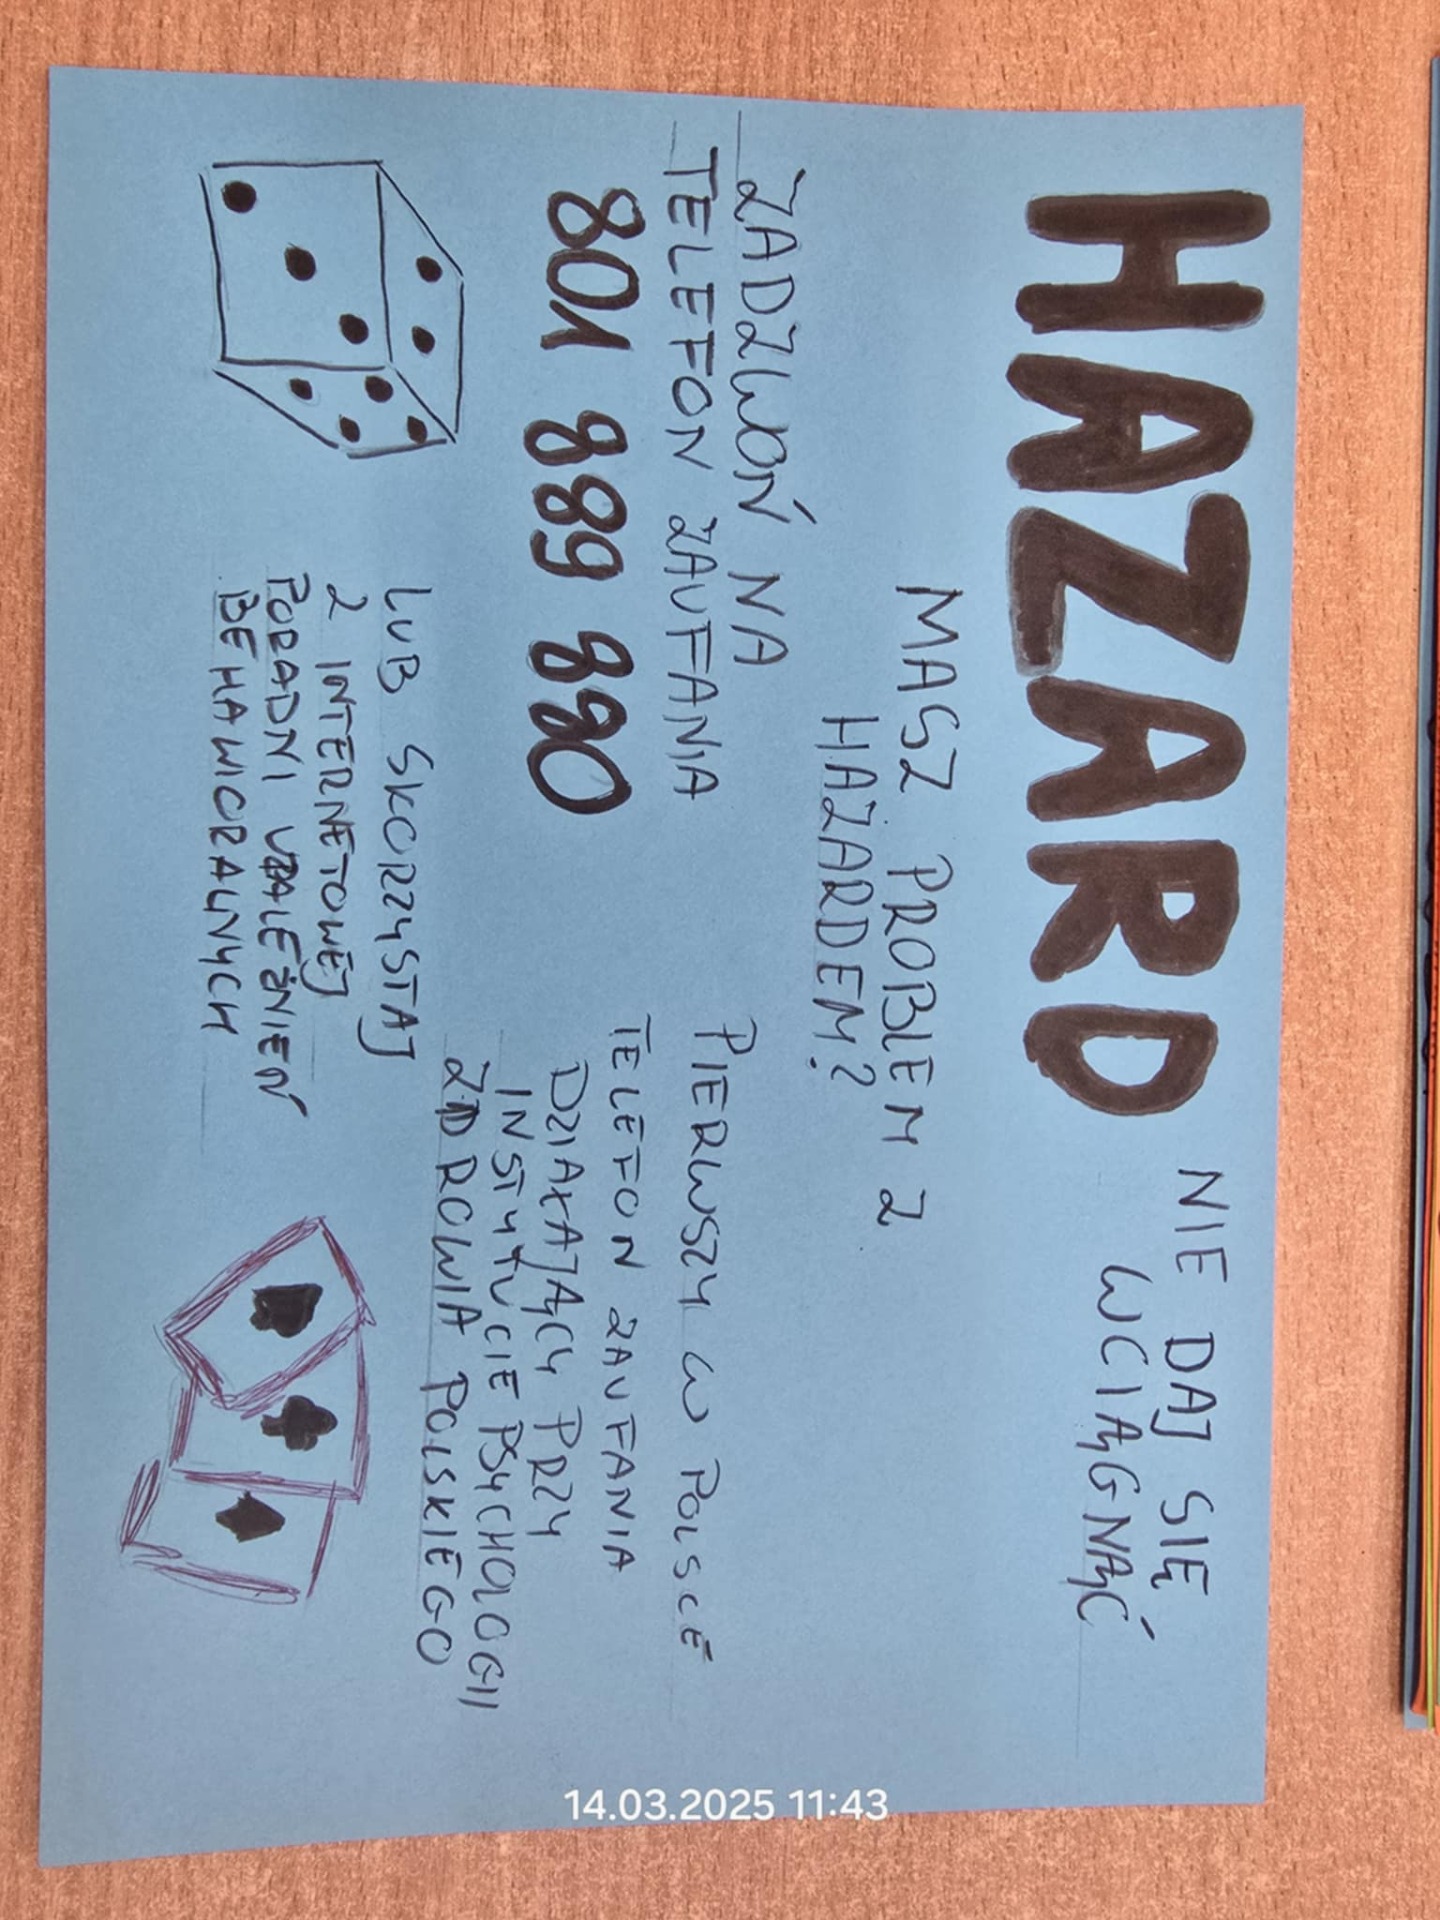 HAZARD
NIE DAJ SIĘ
WCIĄGNĄĆ
MASZ PROBLEM Z
HAZARDEM?
ZADZWOŃ NA
TELEFON ZAUFANIA
801 889 880
PIERWSZY W POLSCE
TELEFON ZAUFANIA
DZIAŁAJĄCY PRZY
INSTYTUCIE PSYCHOLOGII
ZDROWIA POLSKIEGO
LUB SKORZYSTAJ
Z INTERNETOWEJ
PORADNI UZALEŻNIEŃ
BEHAWIORALNYCH
14.03.2025 11:43